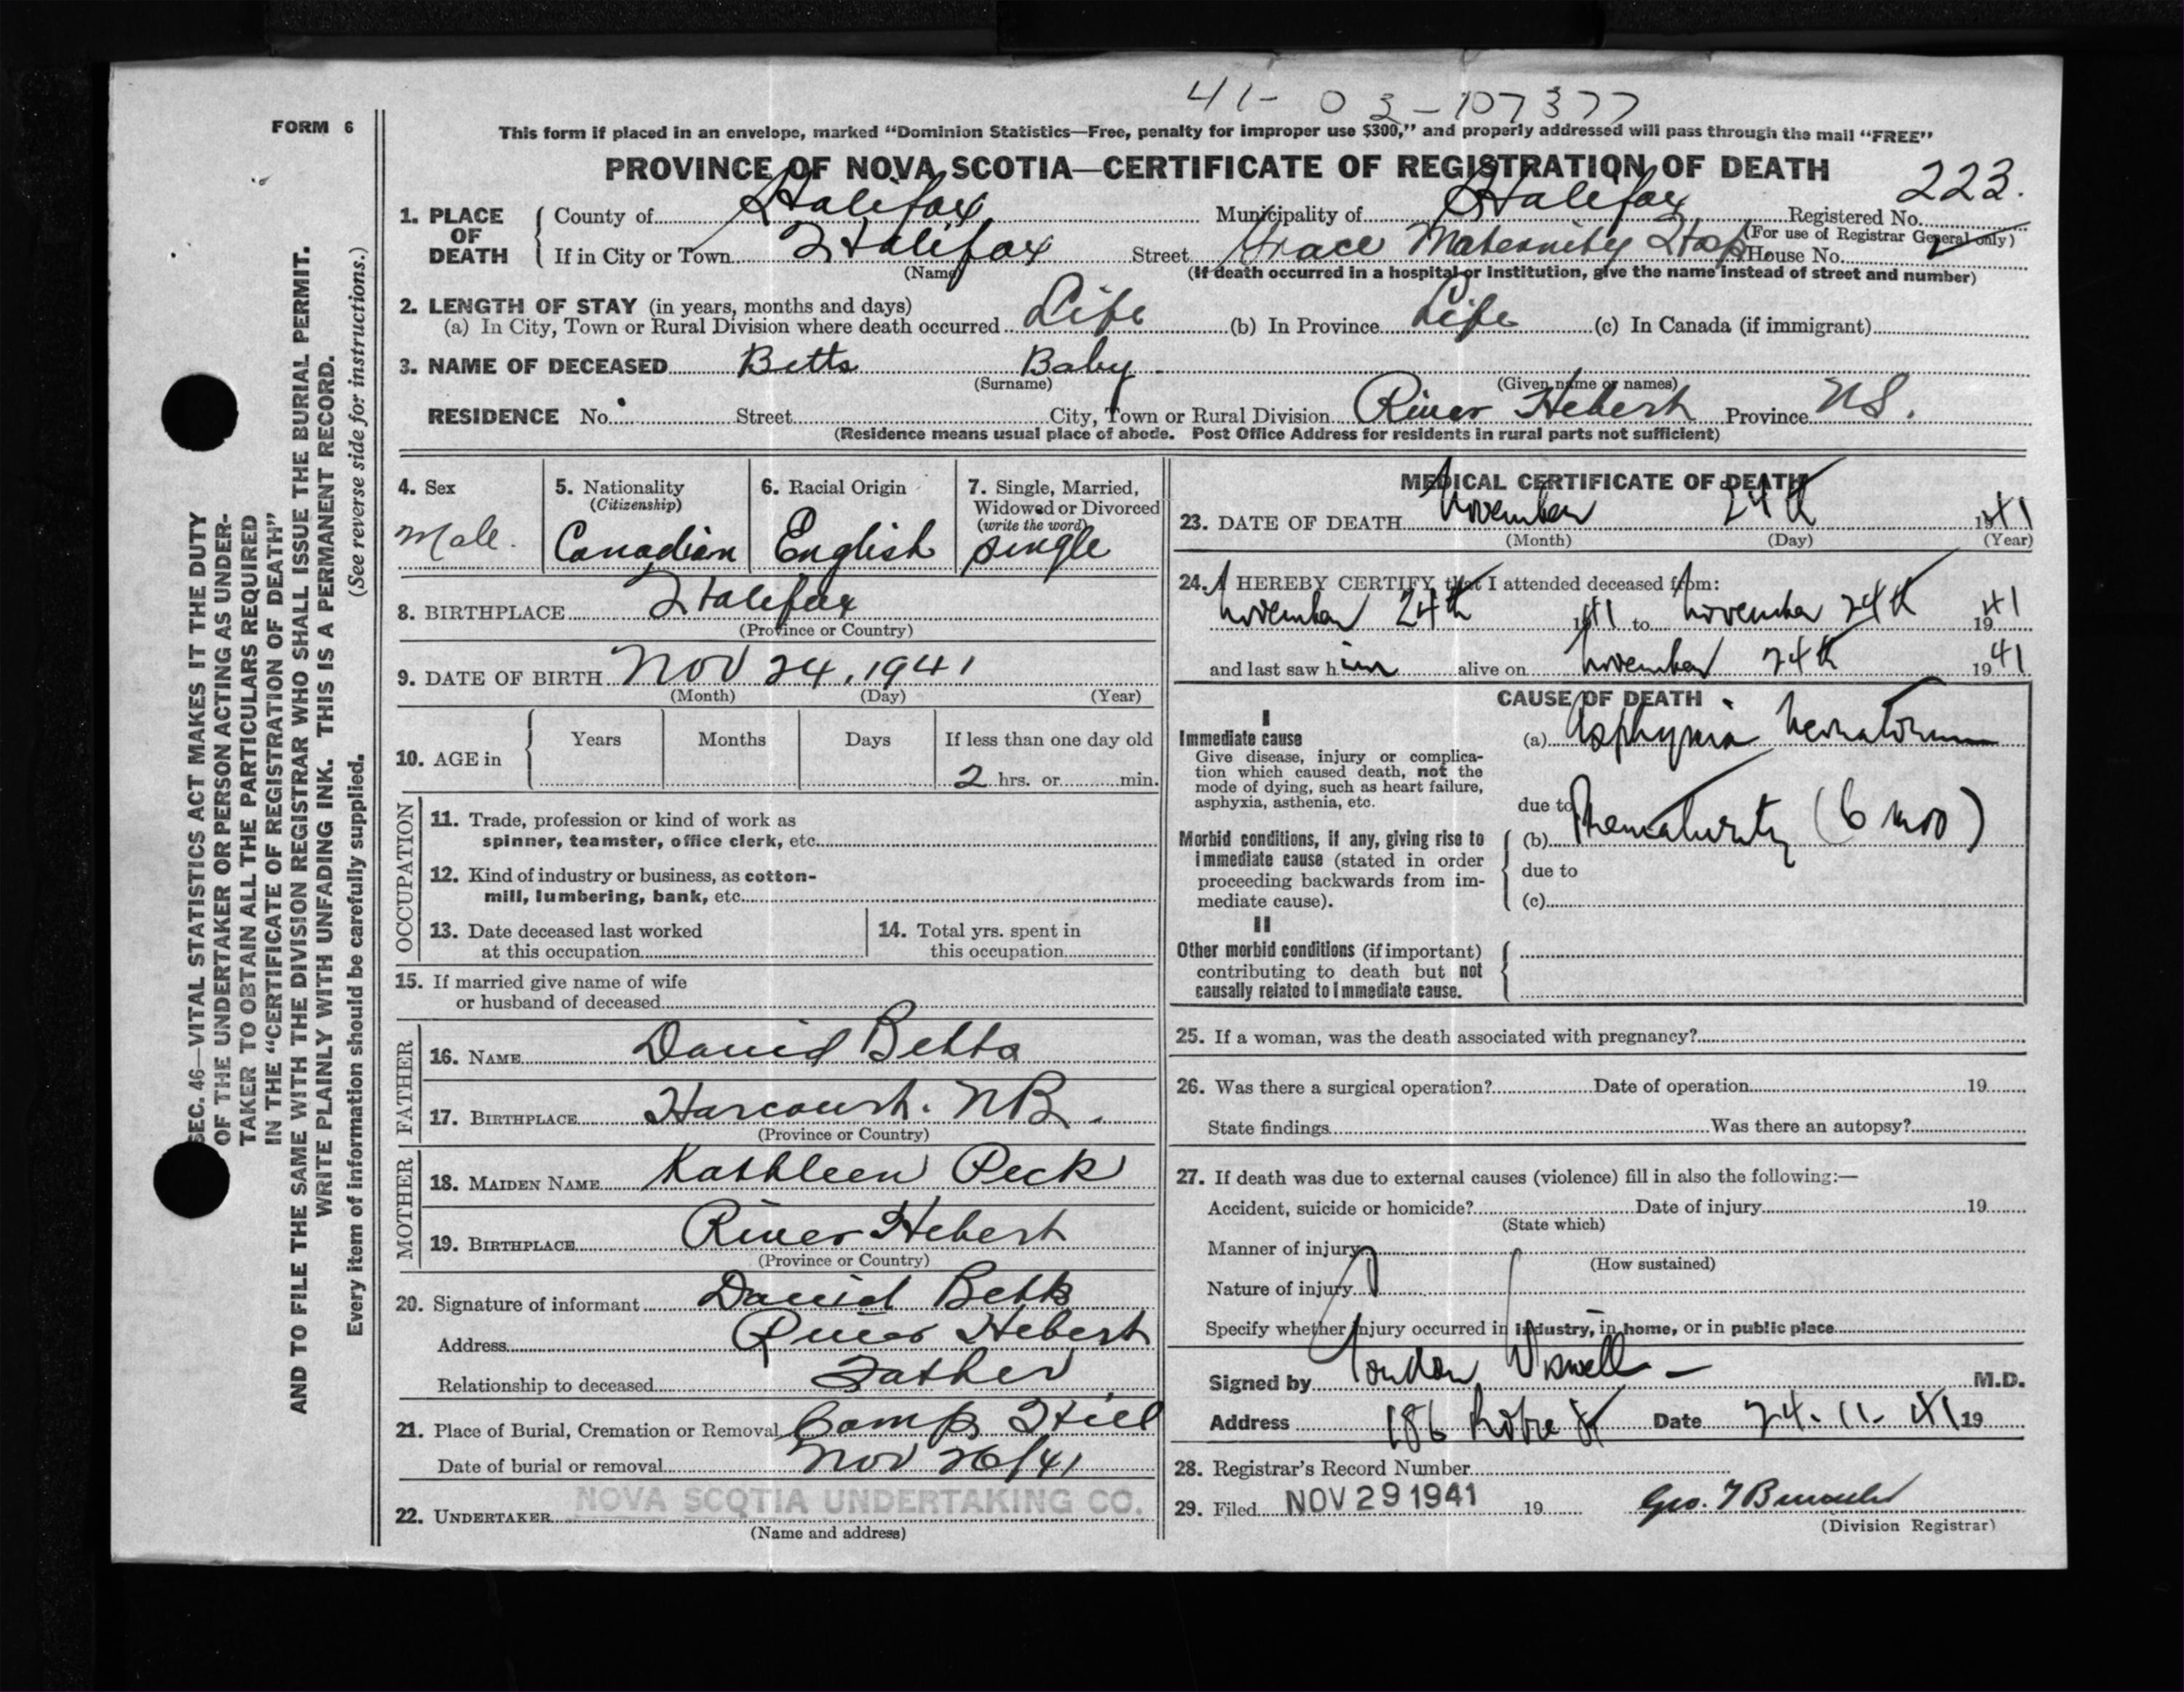 41-03-107377
FORM 6
This form if placed in an envelope, marked "Dominion Statistics—Free, penalty for improper use $300," and properly addressed will pass through the mail "FREE"
PROVINCE OF NOVA SCOTIA—CERTIFICATE OF REGISTRATION OF DEATH
223.
1. PLACE OF DEATH
County of Halifax Municipality of Halifax Registered No.
(For use of Registrar General only)
If in City or Town Halifax Street Grace Maternity Hosp House No.
(Name)
(If death occurred in a hospital or institution, give the name instead of street and number)
2. LENGTH OF STAY (in years, months and days)
(a) In City, Town or Rural Division where death occurred Life (b) In Province Life (c) In Canada (if immigrant)
3. NAME OF DECEASED Betts Baby
(Surname) (Given name or names)
RESIDENCE No. Street City, Town or Rural Division River Hebert Province NS.
(Residence means usual place of abode. Post Office Address for residents in rural parts not sufficient)
4. Sex
Male.
5. Nationality
(Citizenship)
Canadian
6. Racial Origin
English
7. Single, Married,
Widowed or Divorced
(write the word)
single
8. BIRTHPLACE Halifax
(Province or Country)
9. DATE OF BIRTH Nov 24, 1941
(Month) (Day) (Year)
10. AGE in
Years Months Days If less than one day old
2 hrs. or min.
OCCUPATION
11. Trade, profession or kind of work as
spinner, teamster, office clerk, etc.
12. Kind of industry or business, as cotton-
mill, lumbering, bank, etc.
13. Date deceased last worked
at this occupation
14. Total yrs. spent in
this occupation
15. If married give name of wife
or husband of deceased
FATHER
16. NAME David Betts
17. BIRTHPLACE Harcourt. NB.
(Province or Country)
MOTHER
18. MAIDEN NAME Kathleen Peck
19. BIRTHPLACE River Hebert
(Province or Country)
20. Signature of informant David Betts
Address River Hebert
Relationship to deceased Father
21. Place of Burial, Cremation or Removal Camp Hill
Date of burial or removal Nov 26/41
22. UNDERTAKER NOVA SCOTIA UNDERTAKING CO.
(Name and address)
MEDICAL CERTIFICATE OF DEATH
23. DATE OF DEATH November 24th 1941
(Month) (Day) (Year)
24. I HEREBY CERTIFY that I attended deceased from:
November 24th 1941 to November 24th 1941
and last saw him alive on November 24th 1941
CAUSE OF DEATH
I
Immediate cause
Give disease, injury or complica-
tion which caused death, not the
mode of dying, such as heart failure,
asphyxia, asthenia, etc.
(a) Asphyxia Neonatorum
due to
Morbid conditions, if any, giving rise to
immediate cause (stated in order
proceeding backwards from im-
mediate cause).
(b) Prematurity (6 mos)
due to
(c)
II
Other morbid conditions (if important)
contributing to death but not
causally related to immediate cause.
25. If a woman, was the death associated with pregnancy?
26. Was there a surgical operation? Date of operation 19
State findings Was there an autopsy?
27. If death was due to external causes (violence) fill in also the following:—
Accident, suicide or homicide? Date of injury 19
(State which)
Manner of injury
(How sustained)
Nature of injury
Specify whether injury occurred in industry, in home, or in public place
Signed by Wiswell M.D.
Address 186 Robie St Date 24-11-41 19
28. Registrar's Record Number
29. Filed NOV 29 1941 19 Geo. F
(Division Registrar)
SEC. 46—VITAL STATISTICS ACT MAKES IT THE DUTY
OF THE UNDERTAKER OR PERSON ACTING AS UNDER-
TAKER TO OBTAIN ALL THE PARTICULARS REQUIRED
IN THE "CERTIFICATE OF REGISTRATION OF DEATH"
AND TO FILE THE SAME WITH THE DIVISION REGISTRAR WHO SHALL ISSUE THE BURIAL PERMIT.
WRITE PLAINLY WITH UNFADING INK. THIS IS A PERMANENT RECORD.
Every item of information should be carefully supplied. (See reverse side for instructions.)